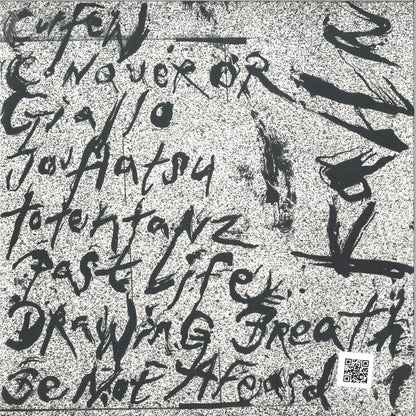 Curfew
CoNquerOR
Giallo
JouHatsu
totentaNZ
Past Life
DRAWiNG Breath
Be Not Afeard